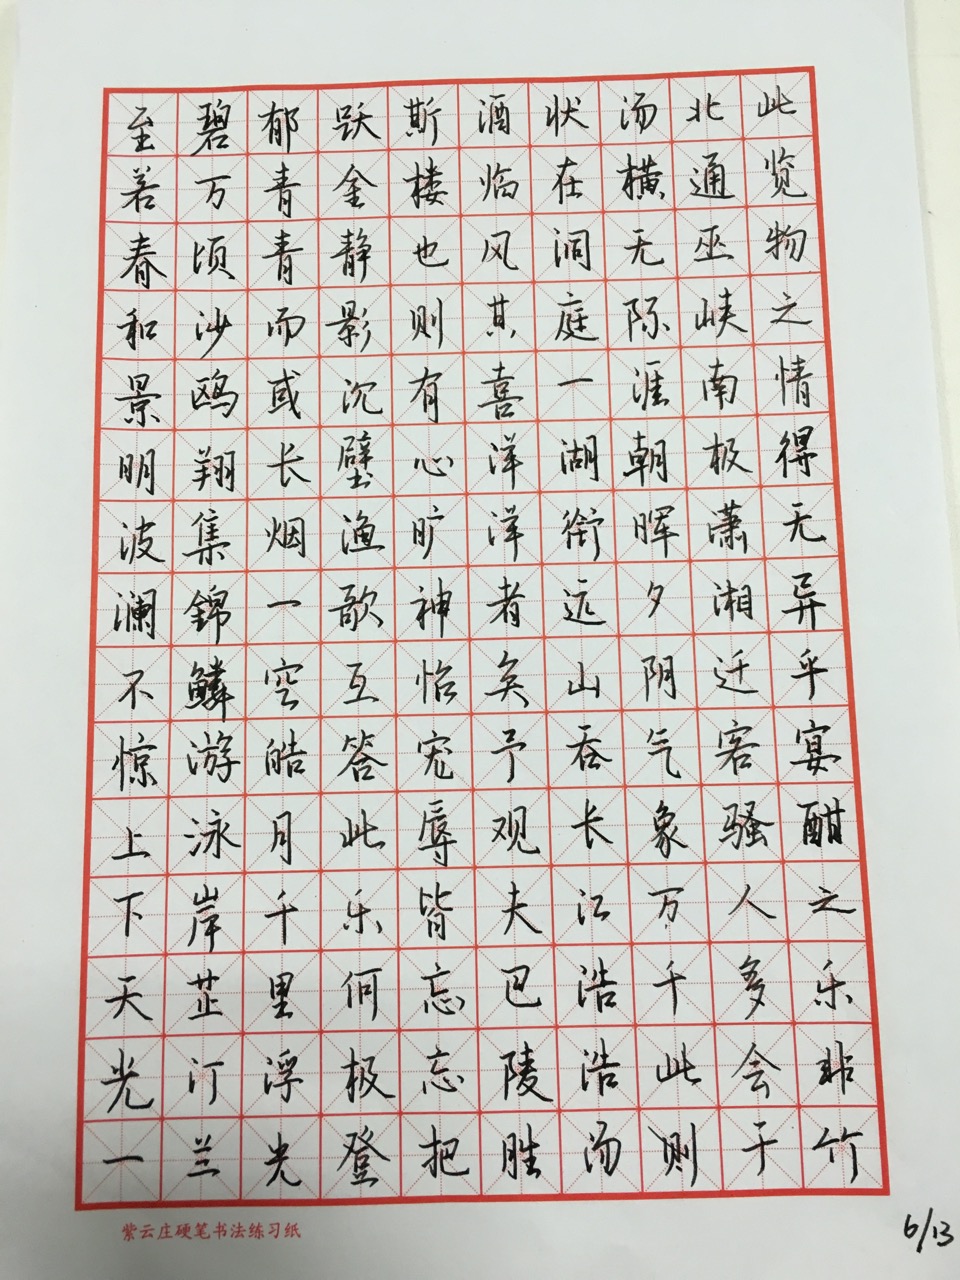 至若春和景明波澜不惊上下天光一
碧万顷沙鸥翔集錦鳞游泳岸芷汀兰
郁青青而或长烟一空皓月千里浮光
跃金静影沉璧渔歌互答此乐何极登
斯楼也则有心旷神怡宠辱皆忘忘把
酒临风其喜洋洋者矣予观夫巴陵胜
状在洞庭一湖衔远山吞长江浩浩汤
汤横无际涯朝晖夕阴气象万千此则
北通巫峡南极潇湘迁客骚人多会于
此览物之情得无异乎宴酣之乐非竹
紫云庄硬笔书法练习纸
6/13